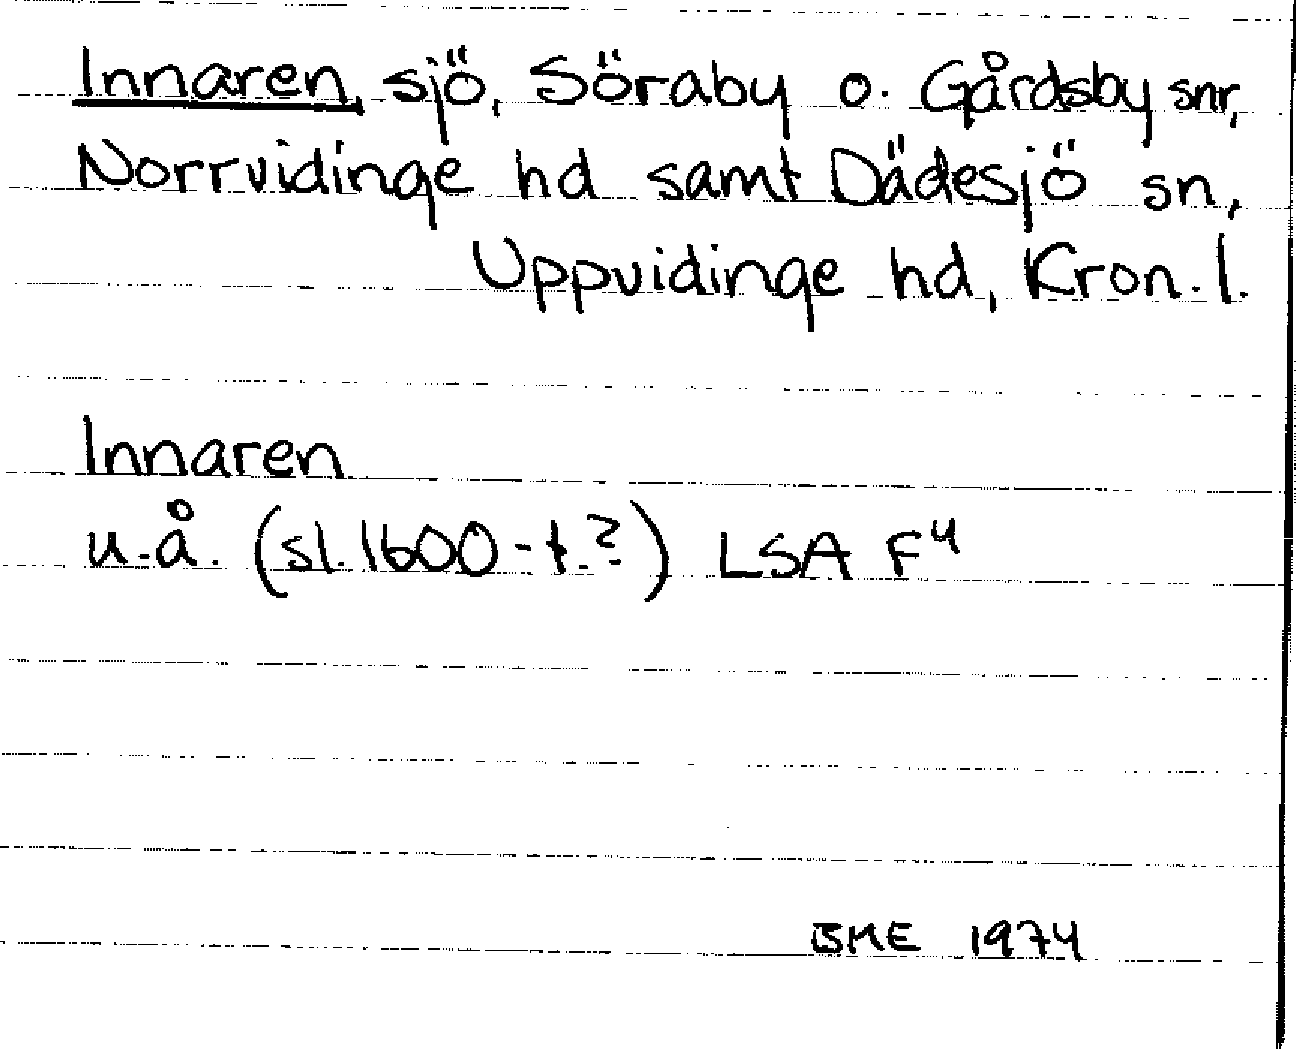 Innaren, sjö, Söraby o. Gårdsby snr,
Norrvidinge hd samt Dädesjö sn,
Uppvidinge hd, Kron. l.
Innaren
u.å. (sl. 1600-t.?) LSA F⁴
BME 1974